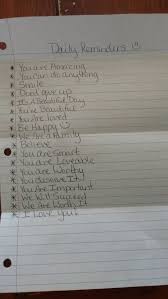 Daily Reminders :)
* You are Amazing
* You can do anything
* Smile
* Don't give up
* It's A Beautiful Day
* You're Beautiful
* You are loved
* Be Happy :)
* We are A Family
* Believe
* You are Smart
* You are Loveable
* You are Worthy
* You deserve it!
* You Are Important
* We Will Succeed
* We Are Worth It
* I Love You!